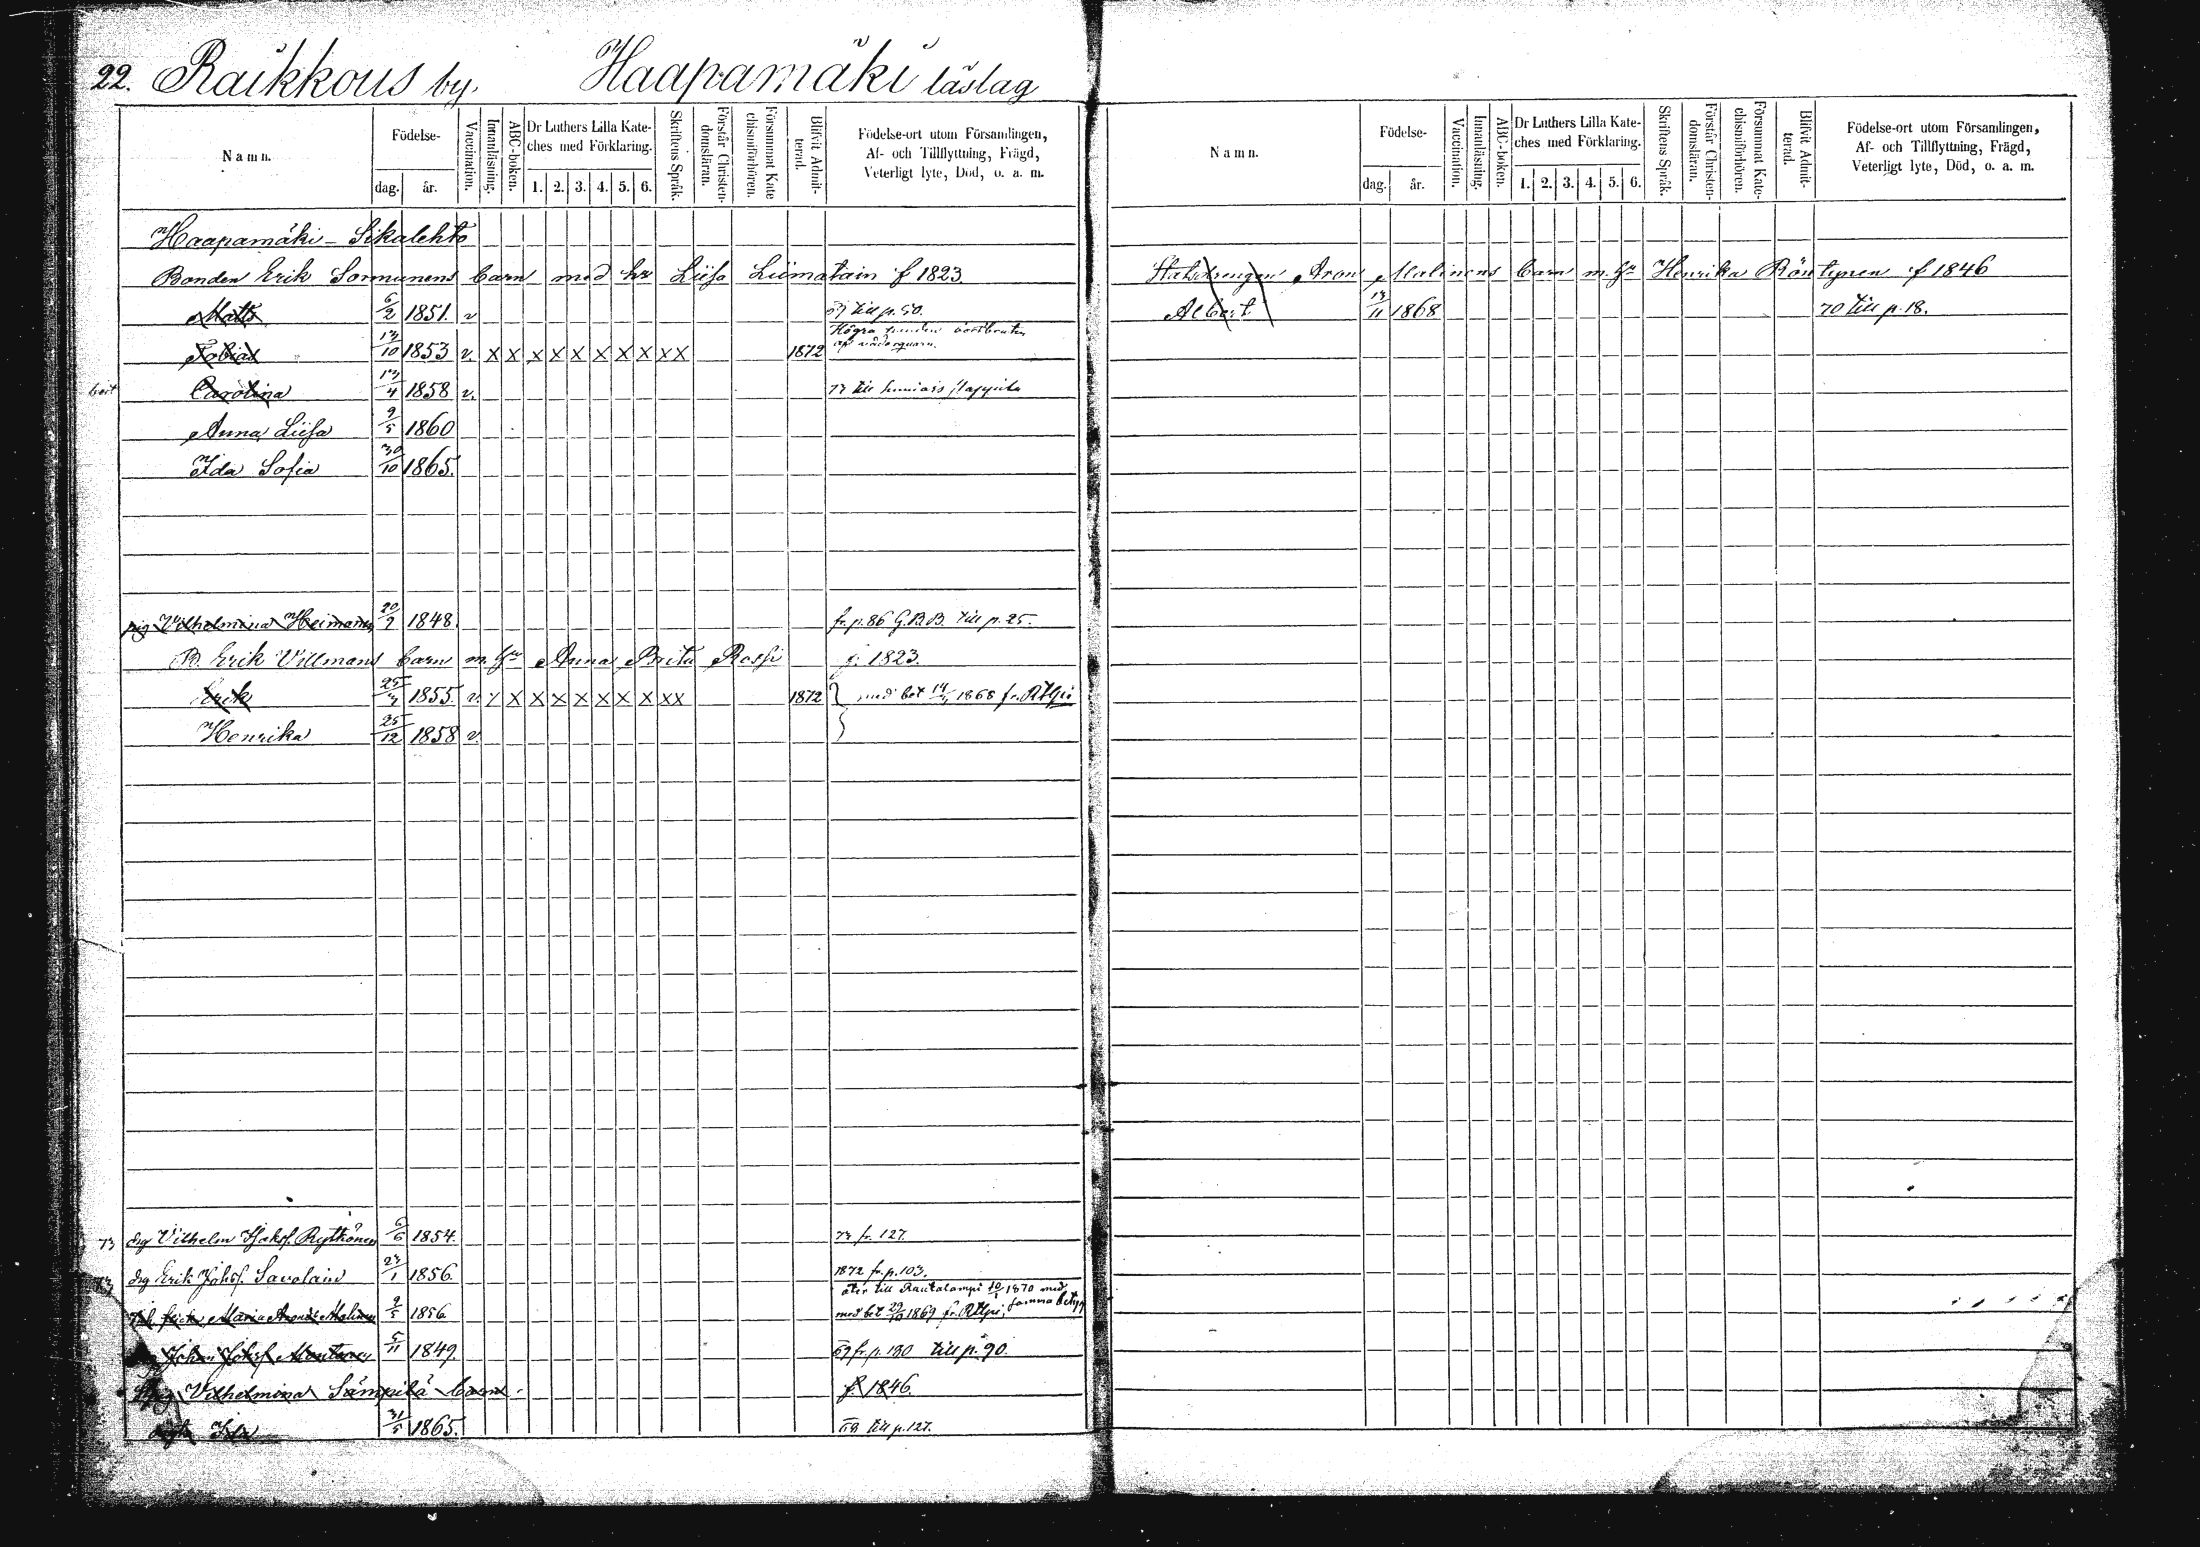 22. Raikkous by. Haapamäki läslag
Namn.
Födelse-
dag. år.
Vaccination.
Innanläsning.
ABC-boken.
Dr Luthers Lilla Kate-
ches med Förklaring.
1. 2. 3. 4. 5. 6.
Skriftens Språk.
Förstår Christen-
domsläran.
Försummat Kate
chismiförhören.
Blifvit Admit-
terad.
Födelse-ort utom Församlingen,
Af- och Tillflyttning, Frägd,
Veterligt lyte, Död, o. a. m.
Haapamäki - Sikalehto
Bonden Erik Sormunens barn med hu Liisa Liimatain f 1823
Matts 6/2 1851. v 69 till p. 50.
Högra
Tobias 13/10 1853 v. X X X X X X X X X X 1872
Carolina 17/4 1858 v. 73 till
Anna Liisa 9/5 1860
Ida Sofia 30/10 1865.
pig Vilhelmina Heimanen 20/9 1848. fr. p. 86 G.B.B. till p. 25.
B. Erik Villmans barn m. hu Anna Brita Rossi f. 1823.
Erik 25/3 1855. v. X X X X X X X X X X 1872 med bet 1868 fr. Rtlpi
Henrika 25/12 1858 v.
73 drg Vilhelm Rytkönen 6/6 1854. 73 fr. 127.
73 drg Erik Johsf. Savolain 23/1 1856. 1872 fr. p. 103.
åter till Rautalampi 1870 med
Maria Malinen 9/5 1856 med bet 1869 fr. Rtlpi; samma betyg
Johan Johsf 5/11 1849. 69 fr. p. 130 till p. 90.
Vilhelmina Sämpilä barn f. 1846.
Ida 31/5 1865. 69 till p. 127.
Namn.
Födelse-
dag. år.
Vaccination.
Innanläsning.
ABC-boken.
Dr Luthers Lilla Kate-
ches med Förklaring.
1. 2. 3. 4. 5. 6.
Skriftens Språk.
Förstår Christen-
domsläran.
Försummat Kate-
chismiförhören.
Blifvit Admit-
terad.
Födelse-ort utom Församlingen,
Af- och Tillflyttning, Frägd,
Veterligt lyte, Död, o. a. m.
Statdrengen Aron Malinens barn m. hu Henrika Röntynen f 1846
Albert 13/11 1868 70 till p. 18.